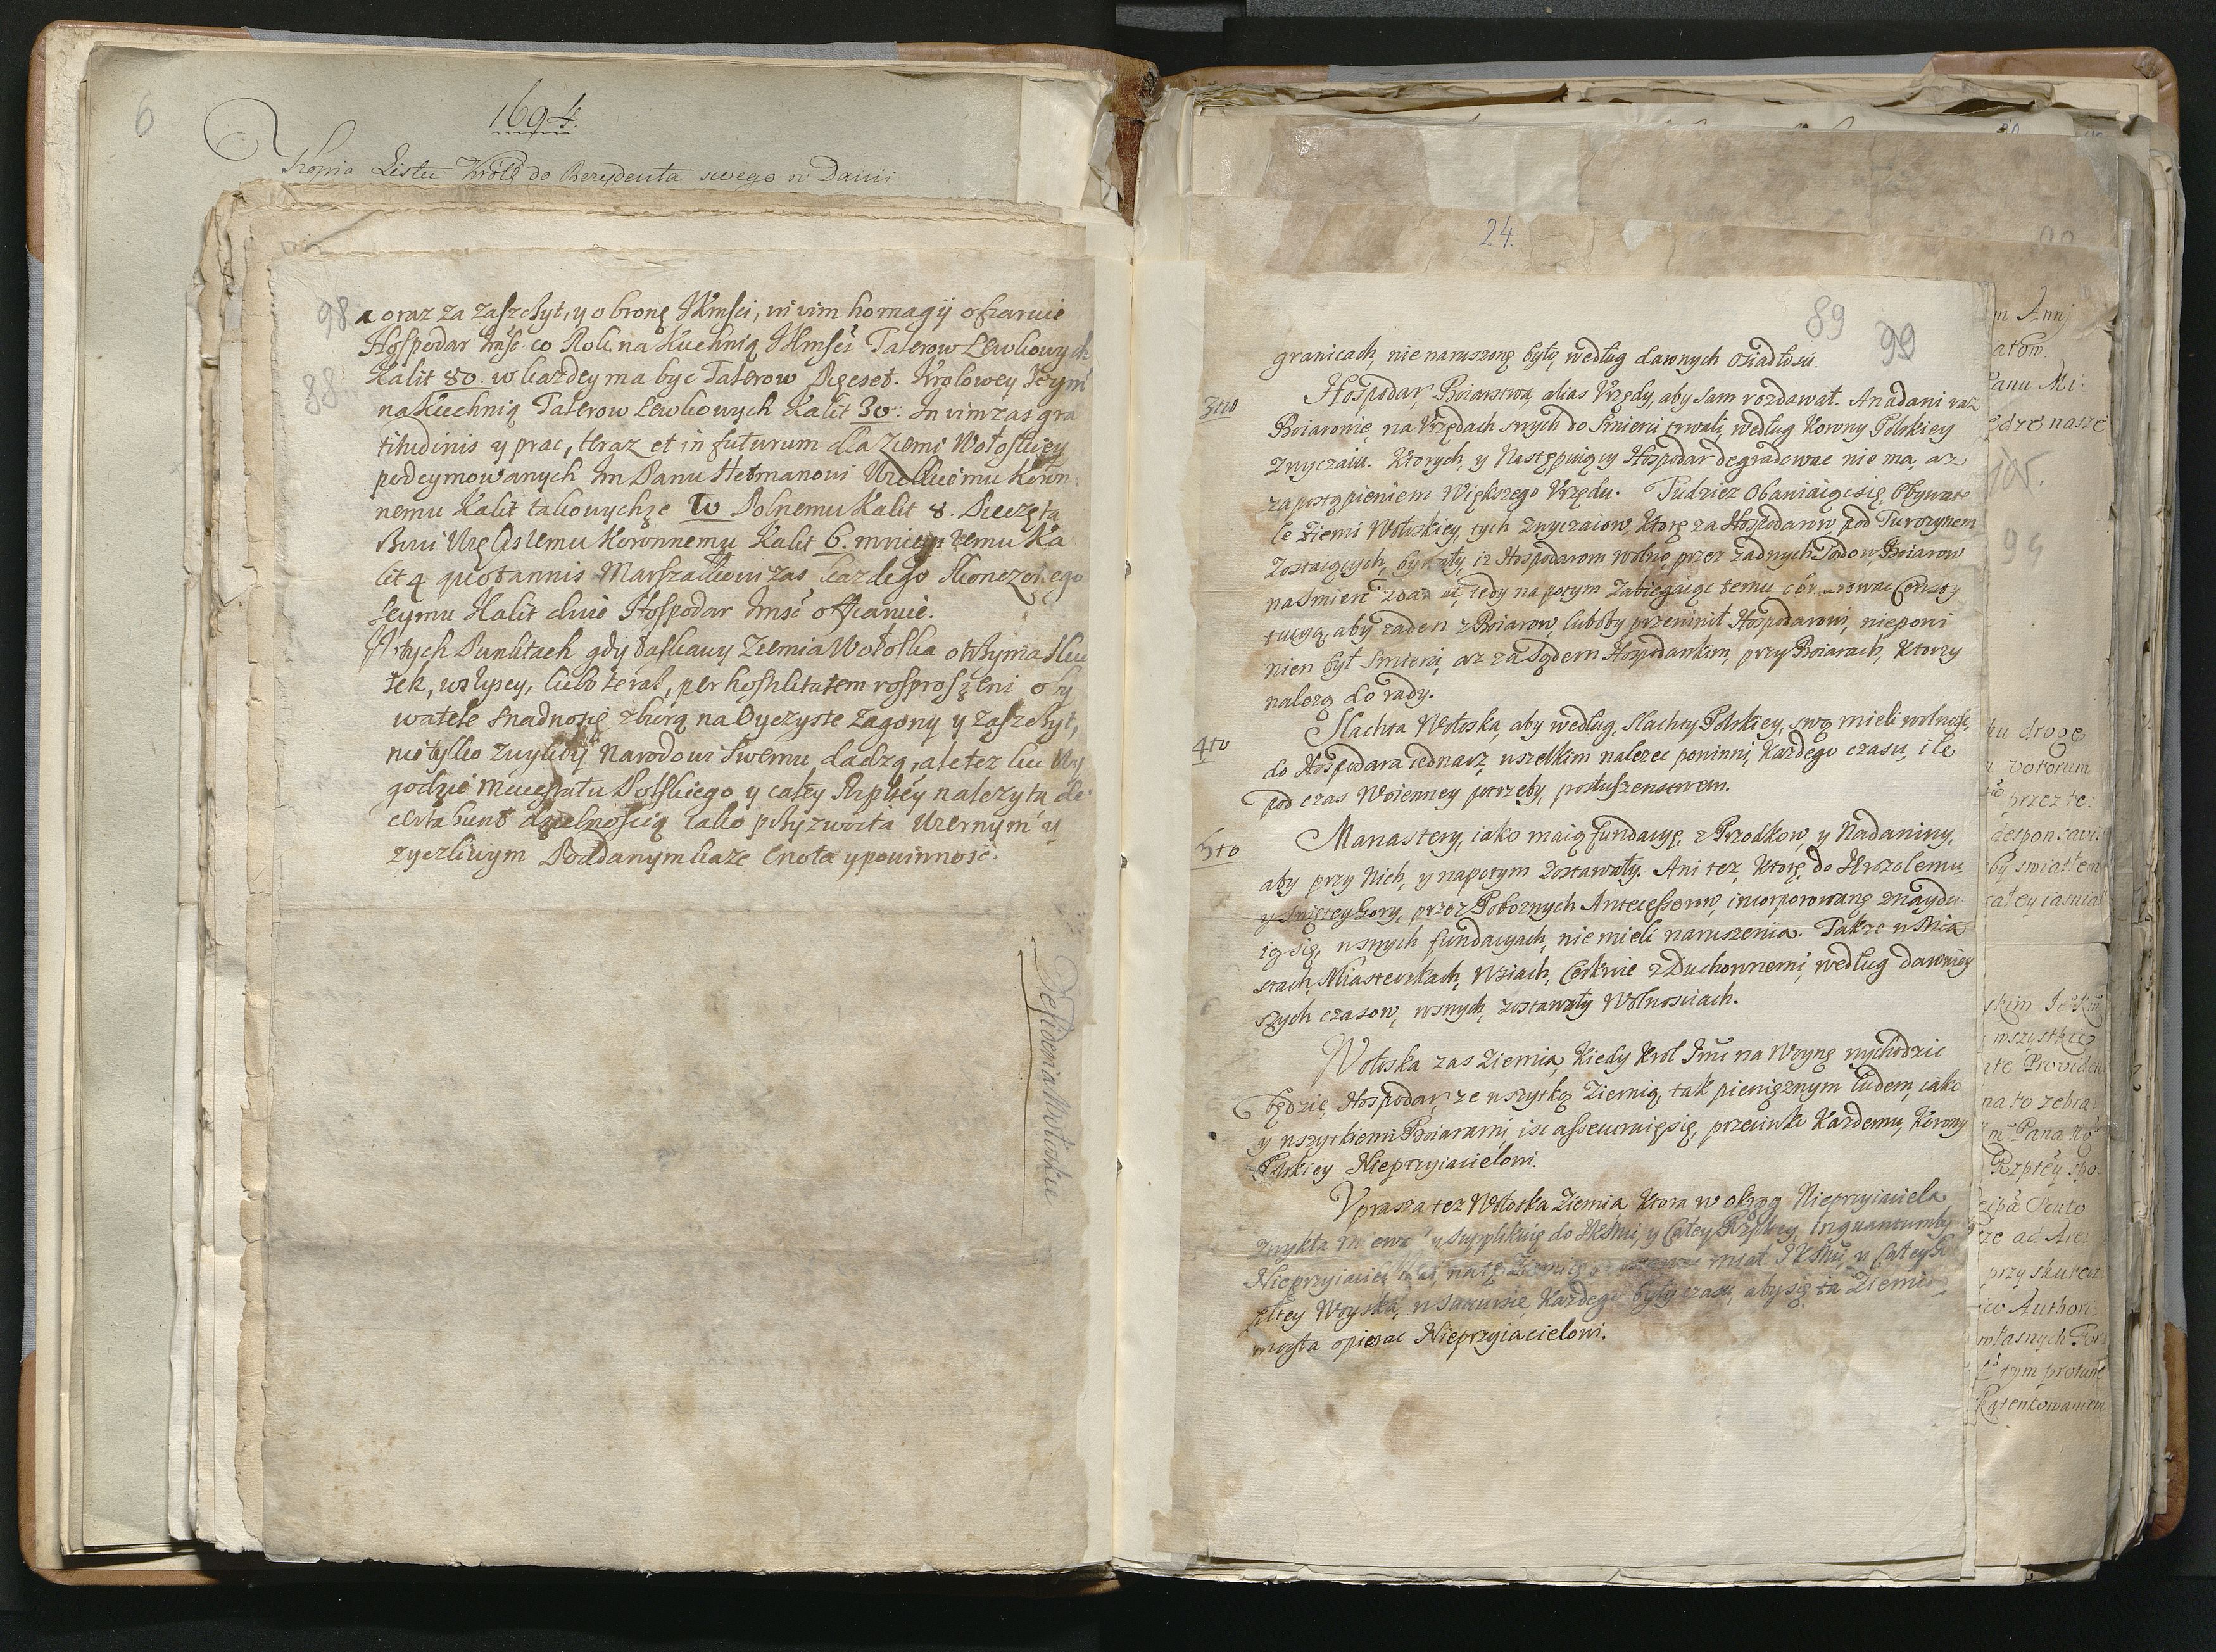 6
1694.
Kopia Listu Króla do Rezydenta swego w Danii
98
a oraz za zaszczyt, y obronę JKmsci, in vim homagij ofiaruie
Hospodar Jmść co Rok na Kuchnią JKmści Talerow Lewkowych
88
Kalit 80. w kazdey ma byc Talerow Pięcset. Krolowey Jeym
na Kuchnią Talerow Lewkowych Kalit 30. In vim zas gra
titudinis y prac, teraz et in futurum dla Ziemi Wołoskiey
podeymowanych Jm Panu Hetmanowi Wielkiemu Koron:
nemu Kalit takowychże 10 Polnemu Kalit 8. Pieczęta
rzowi Koronnemu Kalit 6. mnieyszemu Ka
lit 4 quotannis Marszałkowi zas kazdego skonczonego
seymu Kalit dwie Hospodar Jmść offiaruie.
W tych Punktach gdy łaskawy Ziemia Wołoska otrzyma sku
tek, wszyscy, lubo teraz, per hostilitatem rosproszeni oby
watele snadno się zbiorą na Oyczyste zagony y zaszczyt,
nie tylko zwykły Narodowi swemu dadzą, ale tez ku Wy
godzie Maiestatu Polskiego y całey Rzptey nalezytą de
certabunt dzielnością iako przyzwoita wiernym y
zyczliwym Poddanym kaze cnota y powinnosc.
Desideria Wołoskie
24.
89
99
granicach, nie naruszone były według dawnych osiadłosci.
3tio
Hospodar, Boiarstwa, alias Vrzędy, aby sam rozdawał. A nadani raz
Boiarowie, na Vrzędach swych do smierci trwali, według Korony Polskiey
zwyczaiu. Ktorych, y Następuiący Hospodar degradowac nie ma, az
za postąpieniem Większego Vrzędu. Tudziez Obawiaiąc się, Obywate
le Ziemi Wołoskiey, tych zwyczaiow, Ktore za Hospodarow, pod Turczynem
zostaiących, były iz Hospodarom wolno, przez zadnych Sądow, Boiarow
na smierc zdawac, tedy na potym zabiegaiąc temu
aby zaden z Boiarow, lubo by przewinił Hospodarowi, niepowi
nien był smierci, az za Sądem Hospodarskim, przy Boiarach, Ktorzy
nalezą do rady.
4to
Slachta Wołoska, aby według, Slachty Polskiey, swą mieli wolnosc,
do Hospodara iednasz, wszelkim nalezec powinni, Kazdego czasu, ile
pod czas Woienney potrzeby, posłuszenstwem.
5to
Manastery, iako maią fundacye, z Przodkow, y Nadaniny,
aby przy Nich, y napotym zostawały. Ani tez, Ktore do Hrozolemu
y Swiętey Gory, przez Poboznych Antecessorow, incorporowane znaydu
ią się, w swych fundacyach, nie mieli naruszenia. Takze w Mia
stach, Miasteczkach, Wsiach, Cerkwie z Duchownemi, według dawniey
szych czasow, w swych, zostawały Wolnosciach.
Wołoska zas Ziemia, Kiedy Krol Jmć na Woynę wychodzic
będzie, Hospodar, ze wszytką Ziemią, tak pienięznym ludem, iako
y wszytkiemi Boiarami, isc assecuruię się, przeciwko Kazdemu, Korony
Polskiey Nieprzyiacielowi.
Vprasza tez Wołoska Ziemia, Ktora w okrąg Nieprzyiaciela
zwykła miewac y supplikuię do JKMci, y Całey Rzptey, inquantumby
Nieprzyiaciel na tę Ziemię miał. JKMć, y Całey R
pltey Woyska, w succursie, Kazdego były czasu, aby się ta Ziemia
mogła opierac Nieprzyiacielowi.
m Annj
atow.
Panu Mi:
ędze nasze
105.
94
ku drogę
votorum
przez te:
desponsavi
by swiatlem
całey iasnia
skim
wszystkieg
nte Providen
na to zebra
Pana
Rzptey spo
cipa Scuto
ze ad Arcz
przy skutecz
co Authori
własnych For
tym protune
Katentowaniem